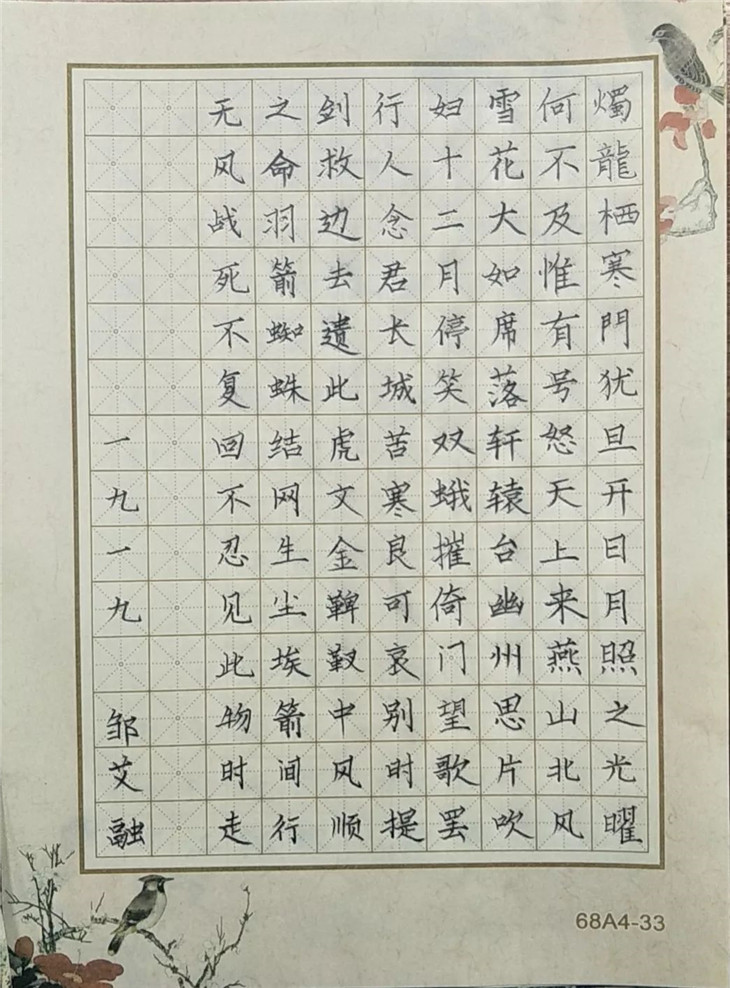 燭龍栖寒門犹旦开日月照之光曜
何不及惟有号怒天上来燕山北风
雪花大如席落轩辕台幽州思片吹
妇十二月停笑双蛾摧倚门望歌罢
行人念君长城苦寒良可哀别时提
剑救边去遗此虎文金鞞靫中风顺
之命羽箭蜘蛛结网生尘埃箭间行
无风战死不复回不忍见此物时走
一九一九 邹艾融
68A4-33